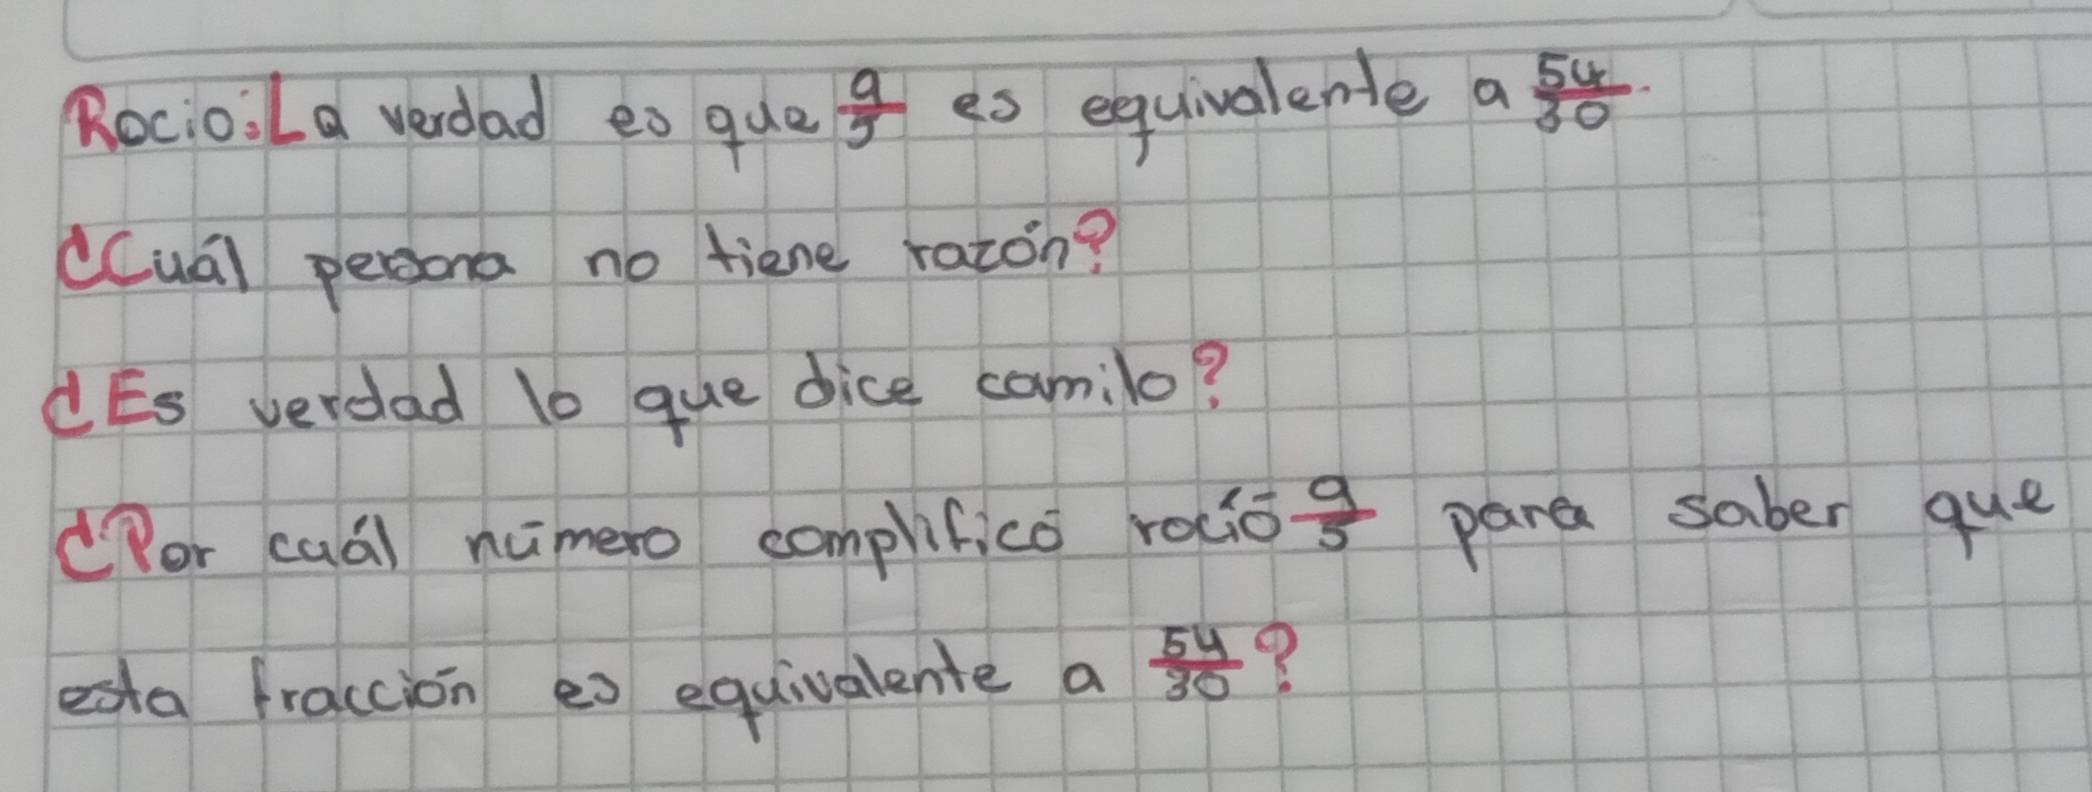 Rocio: La verdad es que 9/5 es equivalente a 54/30.
¿Cuál persona no tiene razón?
¿Es verdad lo que dice camilo?
¿Por cuál número complificó roció 9/5 para saber que
esta fracción es equivalente a 54/30?